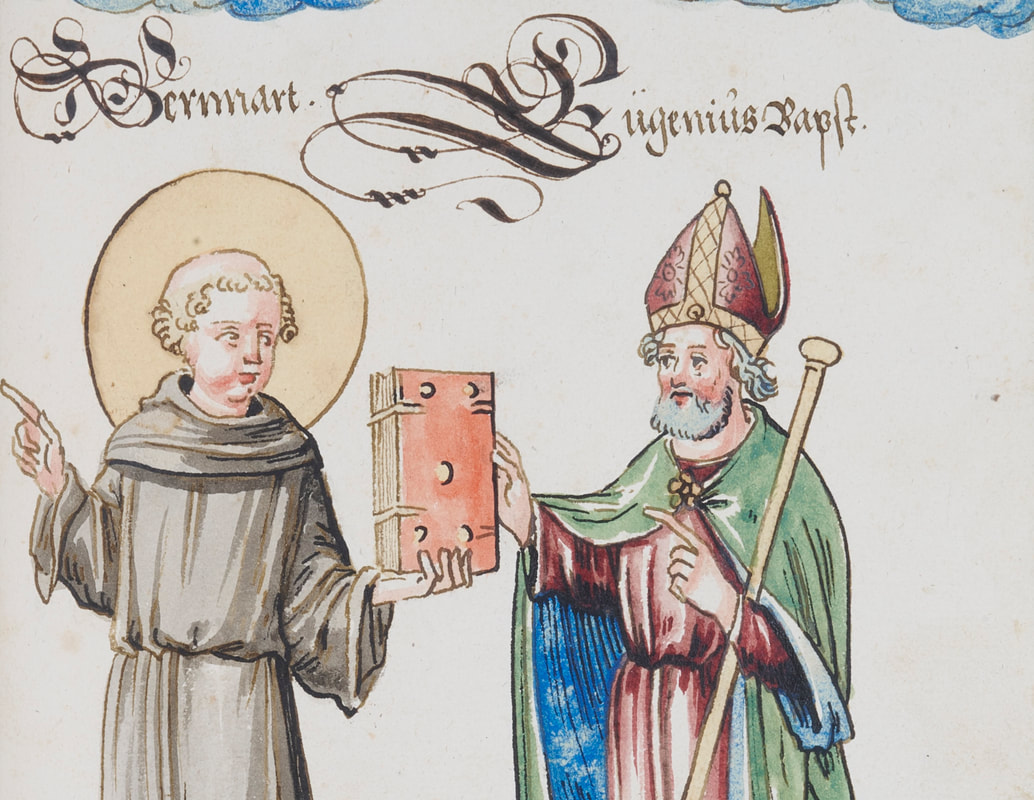 S Bernnart. Eügeniüs Bapst.